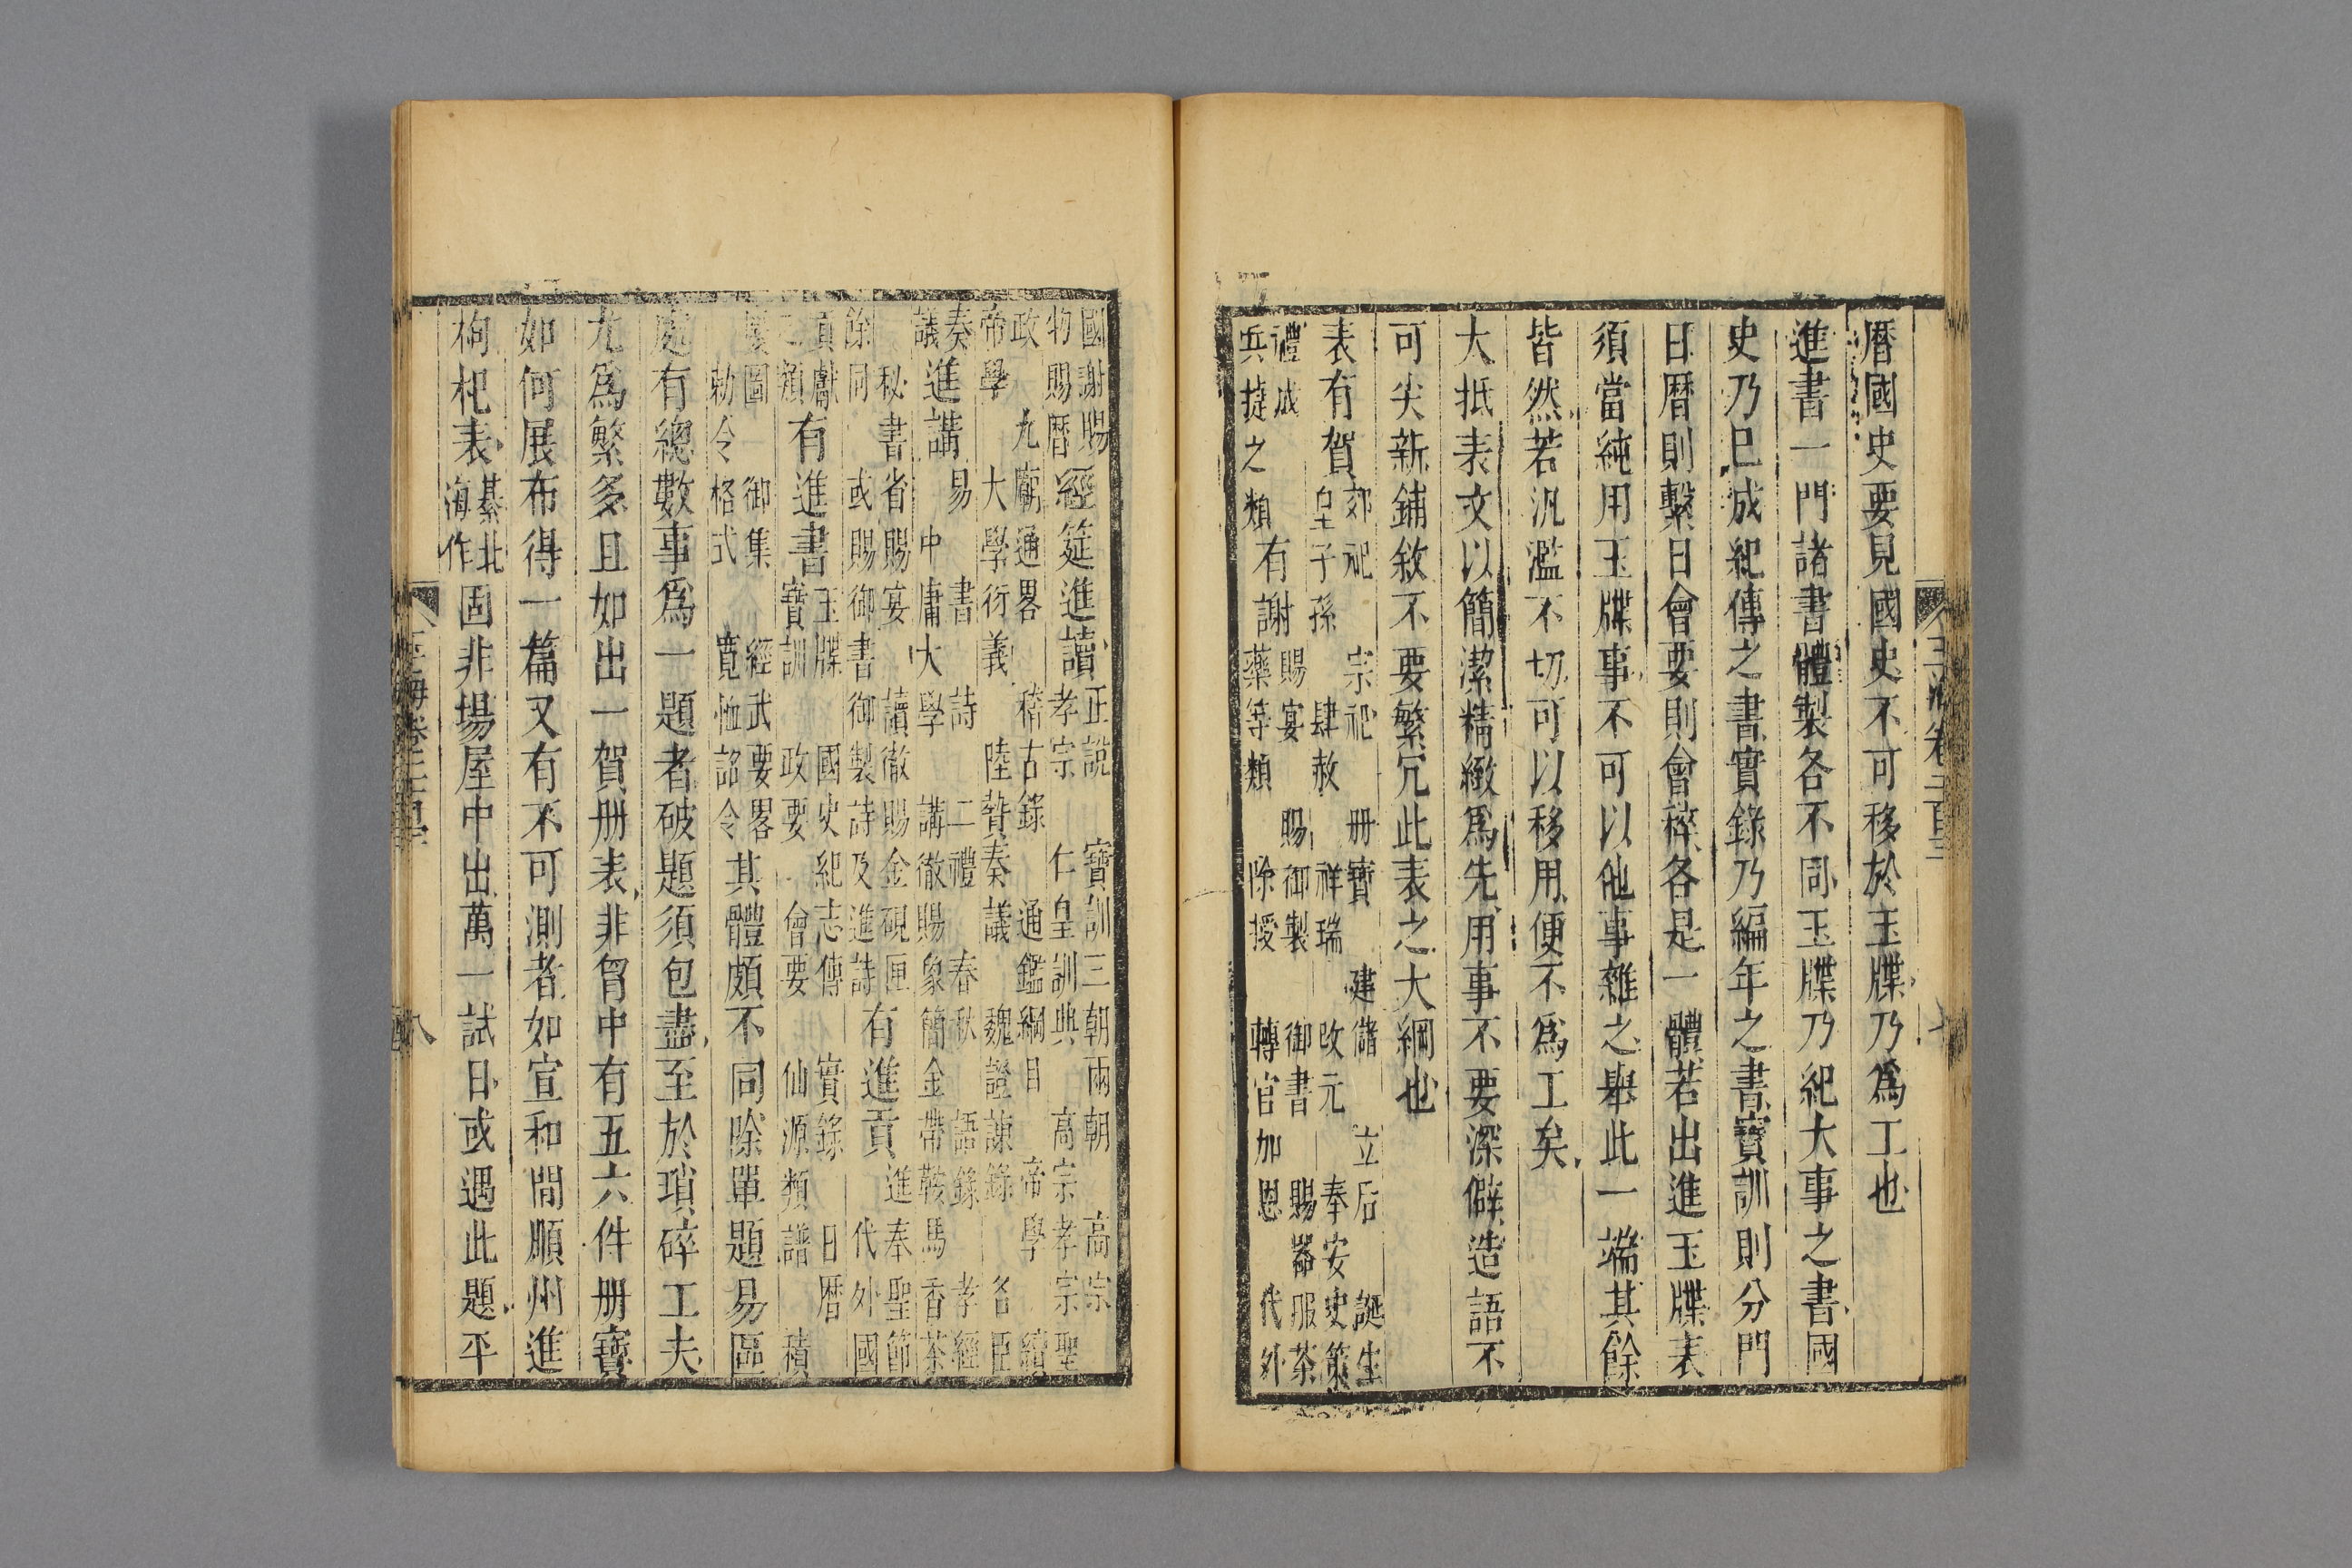 玉海卷二百三
七
曆國史要見國史不可移於玉牒乃爲工也
進書一門諸書體製各不同玉牒乃紀大事之書國
史乃已成紀傳之書實錄乃編年之書寶訓則分門
日曆則繫日會要則會稡各是一體若出進玉牒表
須當純用玉牒事不可以他事雜之舉此一端其餘
皆然若汎濫不切可以移用便不爲工矣
大抵表文以簡潔精緻爲先用事不要深僻造語不
可尖新鋪敘不要繁冗此表之大綱也
表有賀郊祀 宗祀 册寶 建儲 立后 誕生
皇子孫 肆赦 祥瑞 改元 奉安史策
禮成
兵捷之類有謝賜宴 賜御製 御書 賜器服茶
藥等類 除授 轉官加恩 代外
國謝賜
物賜曆經筵進讀正說 寶訓三朝兩朝 高宗
孝宗 仁皇訓典 高宗孝宗聖
政 九廟通畧 稽古錄 通鑑綱目 帝學 續
帝學 大學衍義 陸贄奏議 魏證諫錄 名臣
奏
議進講易 書 詩 二禮 春秋 語錄 孝經
中庸大學 講徹賜象簡金帶鞍馬香茶
秘書省賜宴 讀徹賜金硯匣
餘同 或賜御書御製詩及進詩有進貢進奉聖節
代外國
貢獻
之類有進書玉牒 國史紀志傳 實錄 日曆
寶訓 政要 會要 仙源類譜 積
慶圖 御集 經武要畧
勑令格式 寬恤詔令其體頗不同除單題易區
處有總數事爲一題者破題須包盡至於瑣碎工夫
尤爲繁多且如出一賀册表非胷中有五六件册寶
如何展布得一篇又有不可測者如宣和間順州進
枸杞表綦北
海作固非場屋中出萬一試日或遇此題平
八